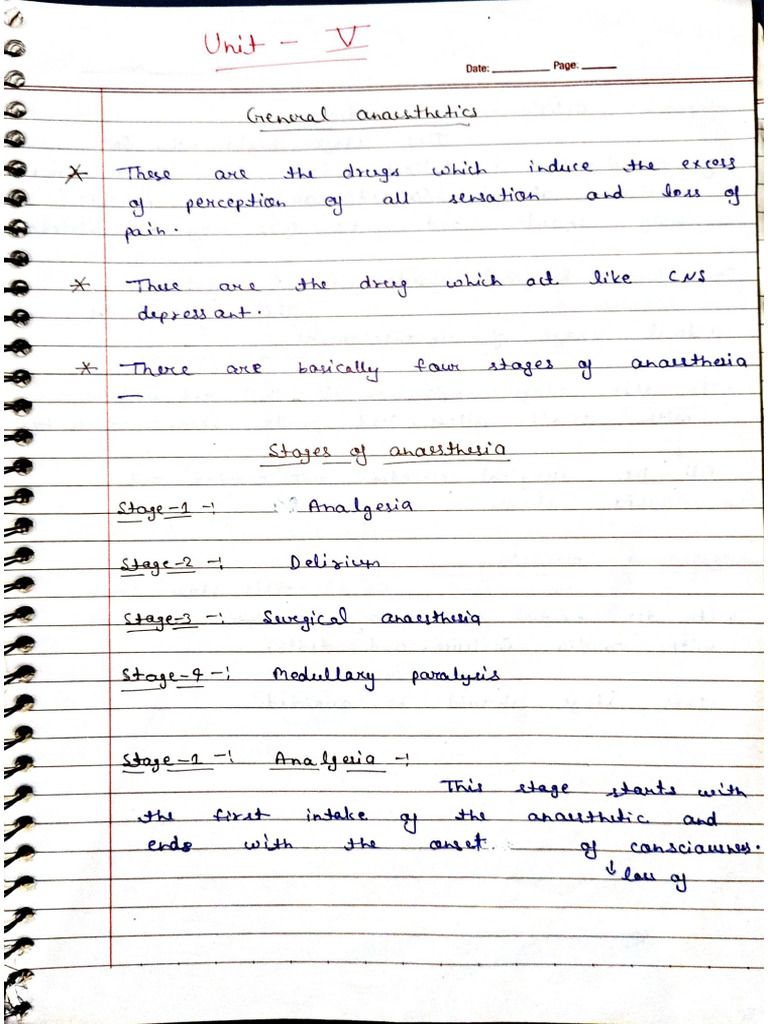 Unit - V
Date: ______ Page: ______
General anaesthetics
* These are the drugs which induce the excess
of perception of all sensation and loss of
pain.
* These are the drug which act like CNS
depressant.
* There are basically four stages of anaesthesia
—
Stages of anaesthesia
Stage-1 -: Analgesia
Stage-2 -: Delirium
Stage-3 -: Surgical anaesthesia
Stage-4 -: Medullary paralysis
Stage-1 -: Analgesia -:
This stage starts with
the first intake of the anaesthetic and
ends with the onset of consciousness.
↓ loss of